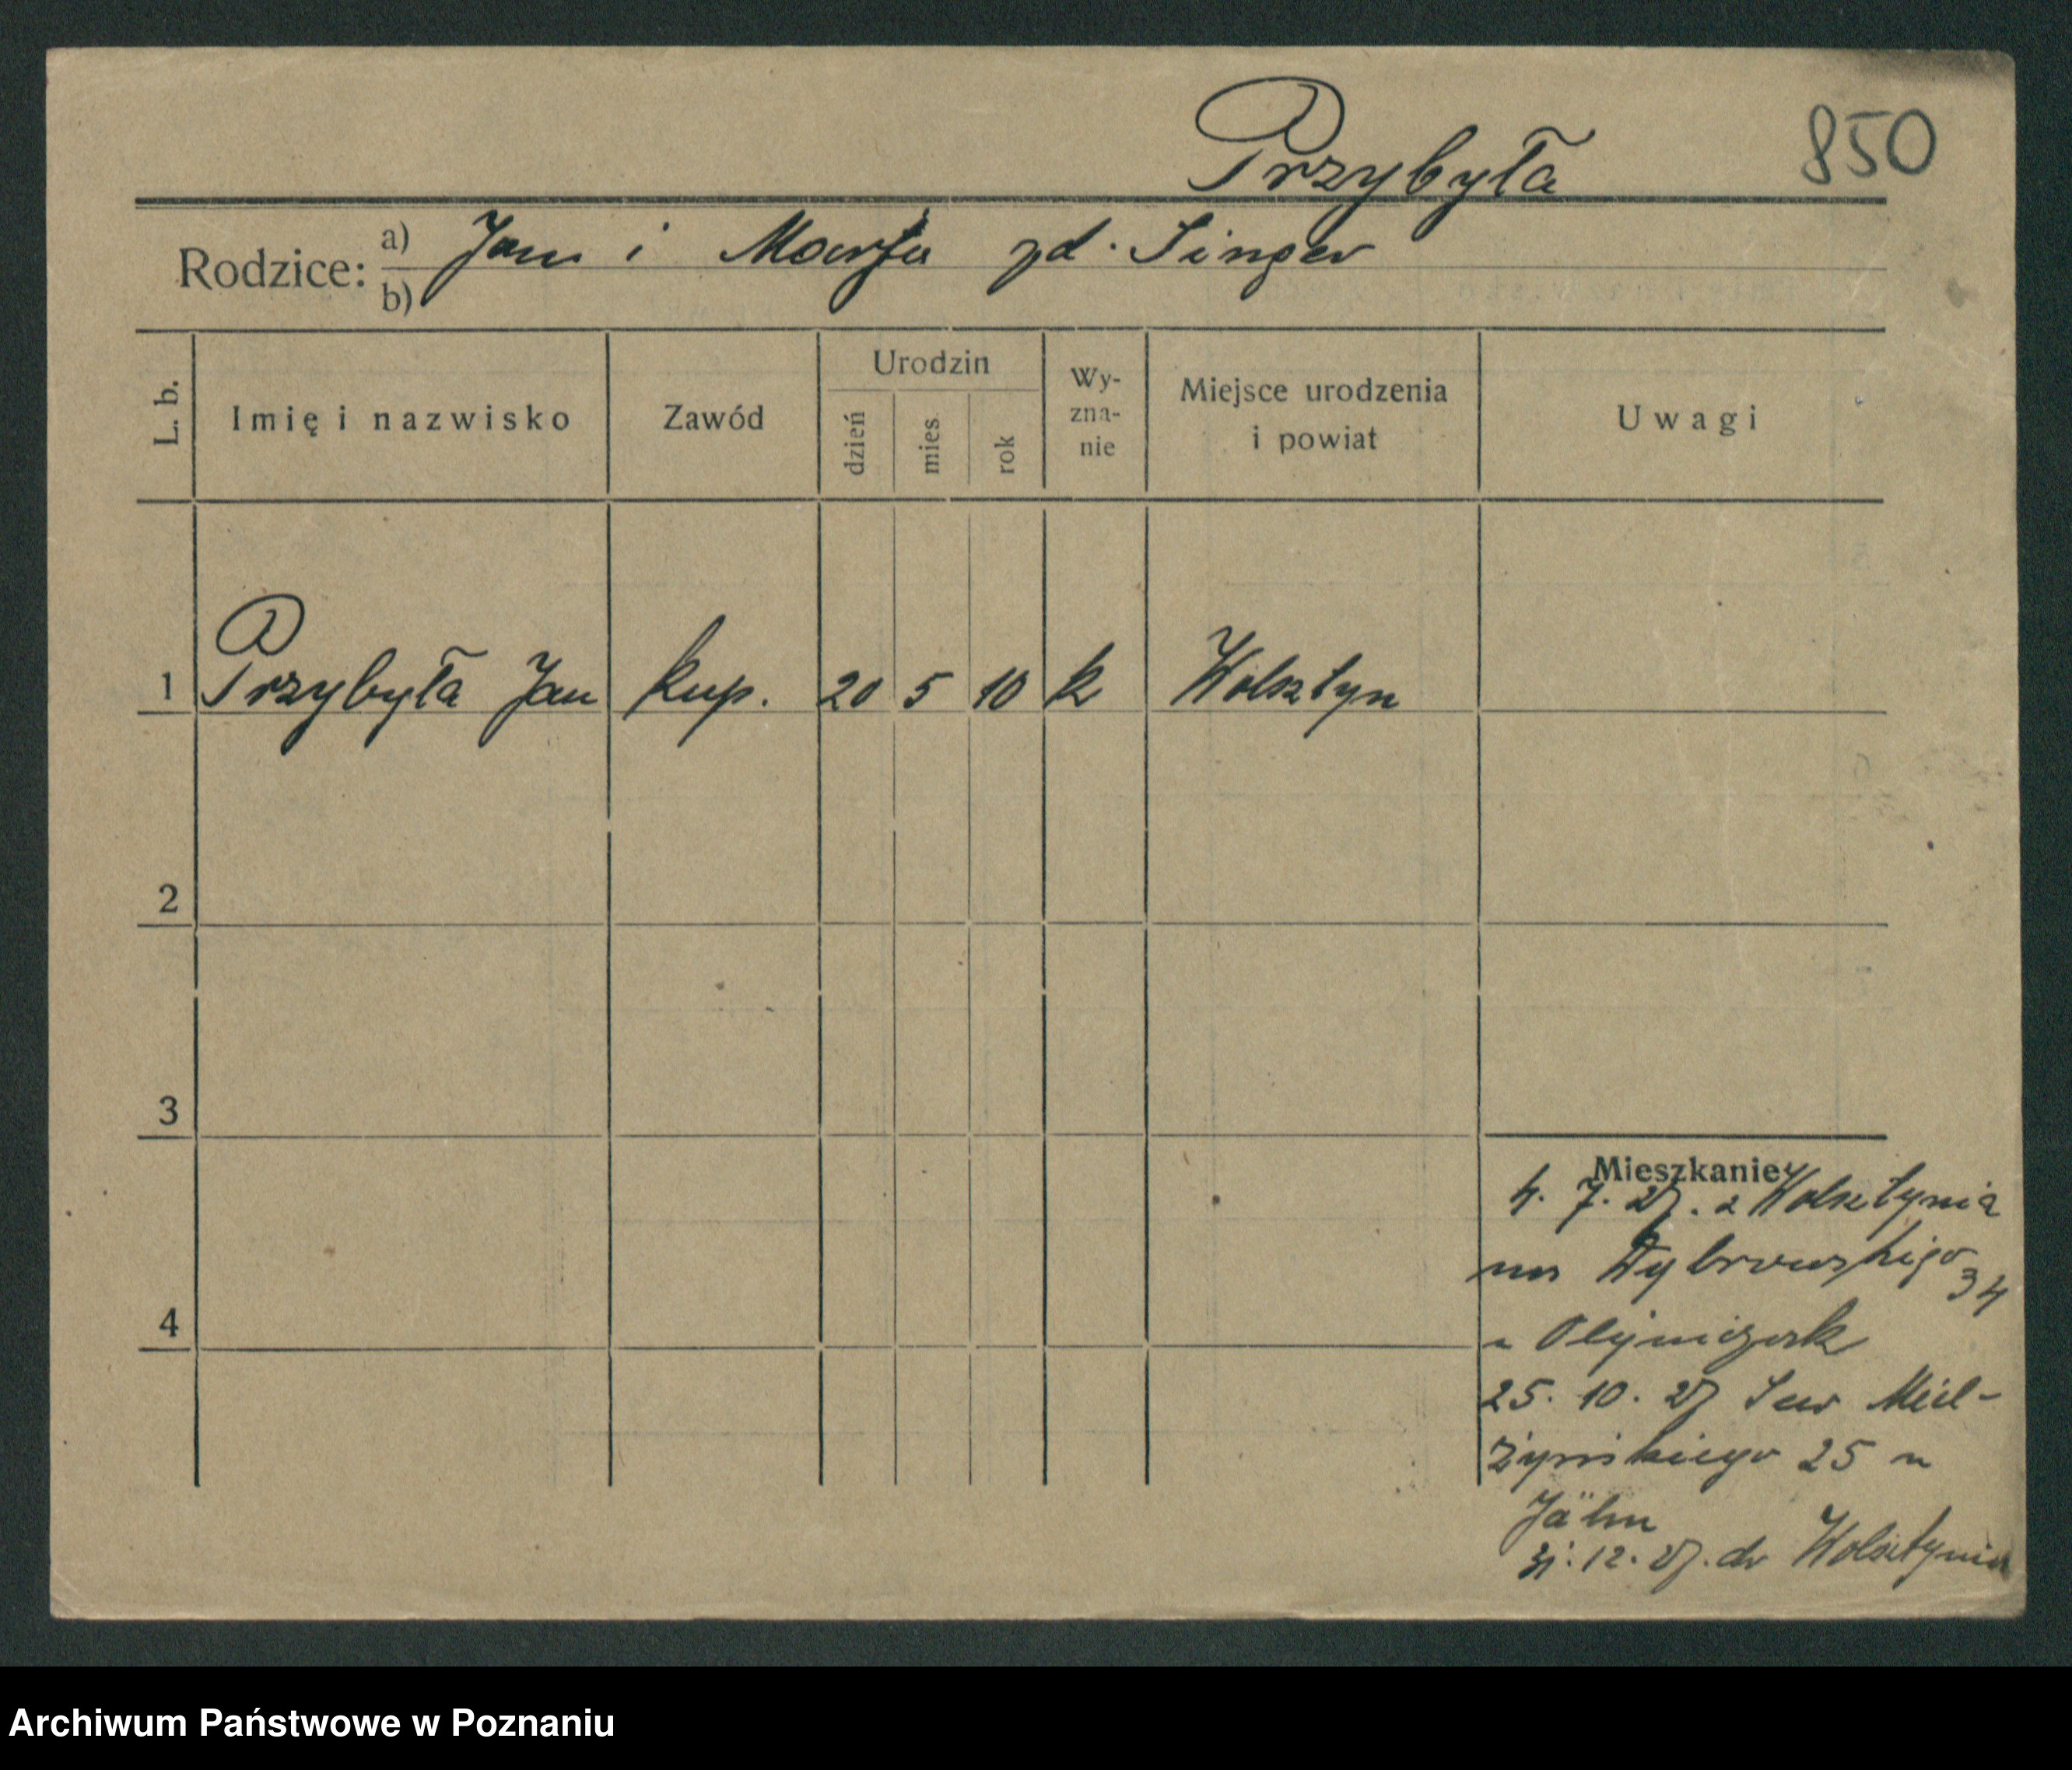 Przybyła 850
Rodzice: a) Jan i Marta zd. Singer
b)
L. b. Imię i nazwisko Zawód Urodzin dzień mies. rok Wy-zna-nie Miejsce urodzenia i powiat Uwagi
1 Przybyła Jan kup. 20 5 10 k Wolsztyn
2
3
Mieszkanie:
4. 7. 27. z Wolsztyna
34
4
u Olejniczak
25. 10. 27 Sew Miel-
żyńskiego 25 u
Jähn
31. 12. 27. do Wolsztyna
Archiwum Państwowe w Poznaniu